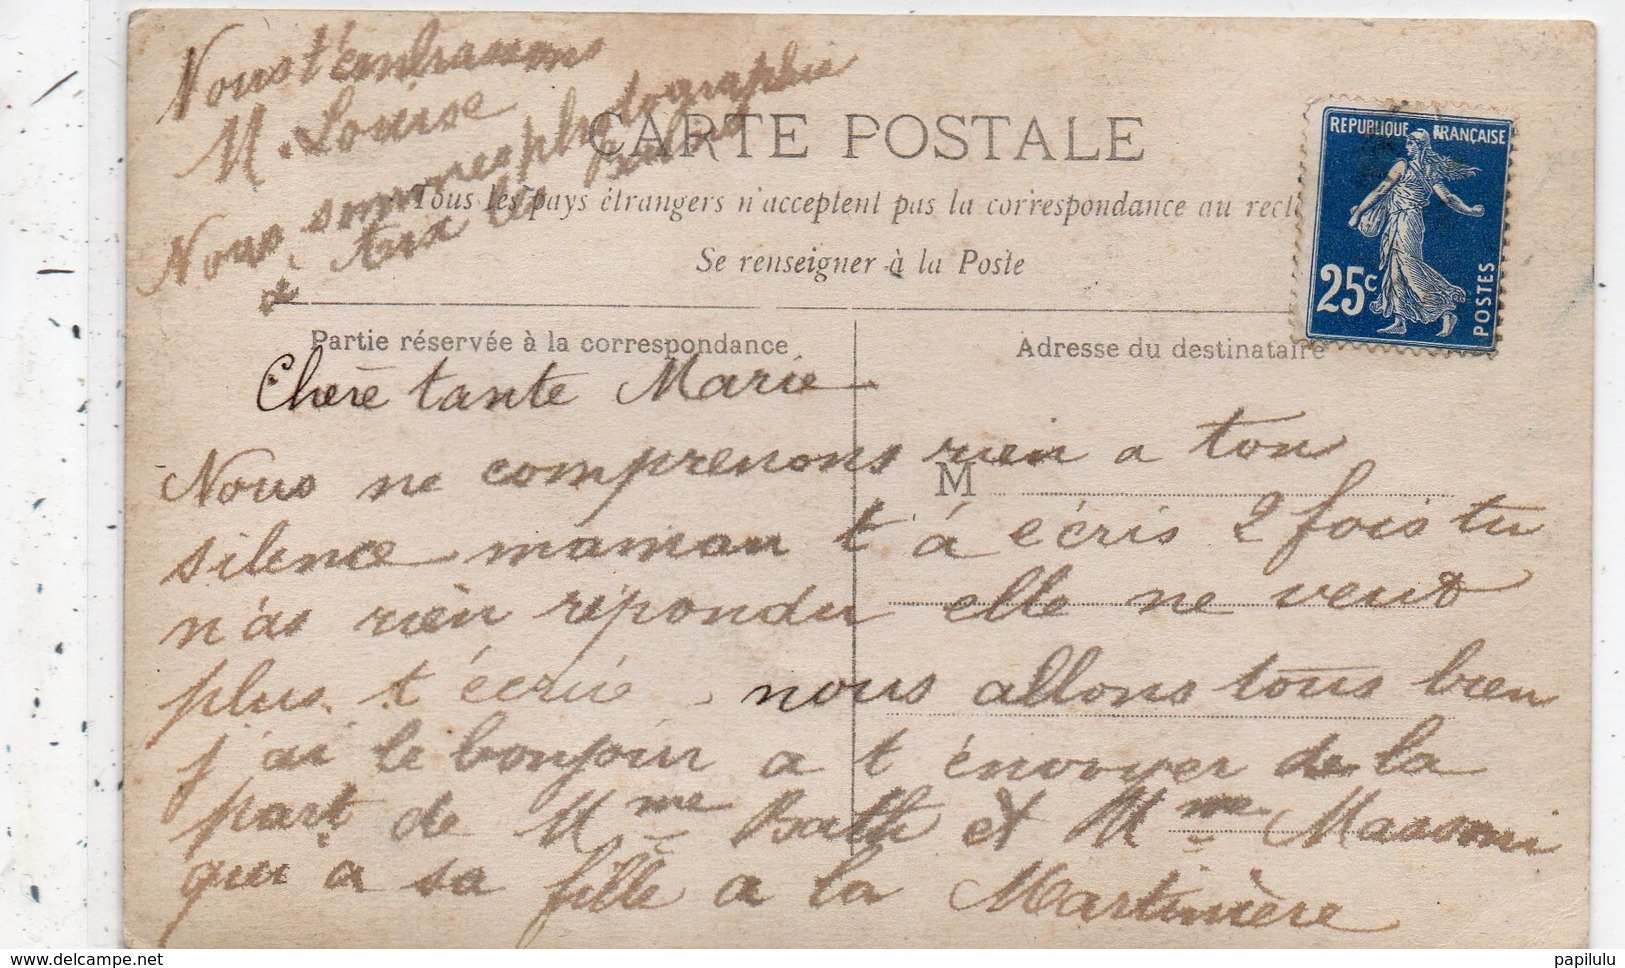 Nous t'embrassons
M. Louise
Nous sommes photographié
a Aix les Bains
CARTE POSTALE
Tous les pays étrangers n'acceptent pas la correspondance au rect
Se renseigner à la Poste
REPUBLIQUE FRANÇAISE
25c
POSTES
Partie réservée à la correspondance
Adresse du destinataire
M
Chere tante Marie
Nous ne comprenons rien a ton
silence maman t á écris 2 fois tu
n'as rien répondu elle ne veut
plus t écrire. nous allons tous bien
j'ai le bonjour a t énvoyer de la
part de Mme Bath et Mme Massoni
qui a sa fille a la Martinière
delcampe.net
papilulu